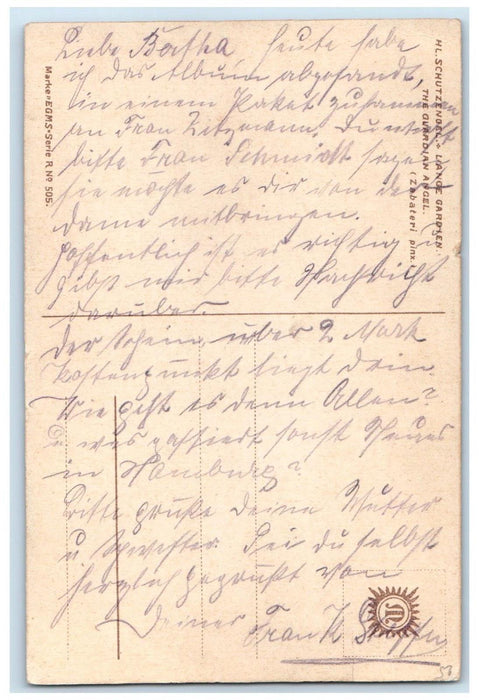 Liebe Bertha heute habe
ich das Album abgesandt,
in einem Paket zusammen
an Frau Du
bitte Frau Schmidt sagen
sie möchte es dir von der
Dame mitbringen.
Hoffentlich ist es richtig u
gibst mir bitte Nachricht
darüber.
Der Schein über 2 Mark
liegt drin
Wie geht es denn Allen?
u was passiert sonst Neues
in Hamburg?
Bitte grüße deine Mutter
u Schwester. Sei du selbst
herzlich gegrüßt von
Deiner Frau K
HL. SCHUTZENGEL. L'ANGE GARDIEN.
THE GUARDIAN ANGEL.
(Zabateri pinx.)
Marke »EGMS« Serie R No 505.
53